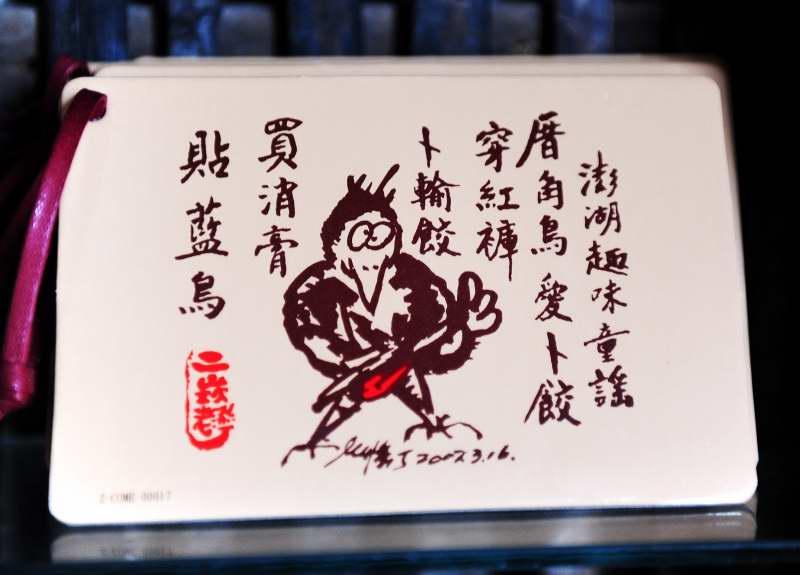 澎湖趣味童謠
厝角鳥愛卜餃
穿紅褲
卜輸餃
買消膏
貼藍鳥
2002.3.16.
Z-COME-00017